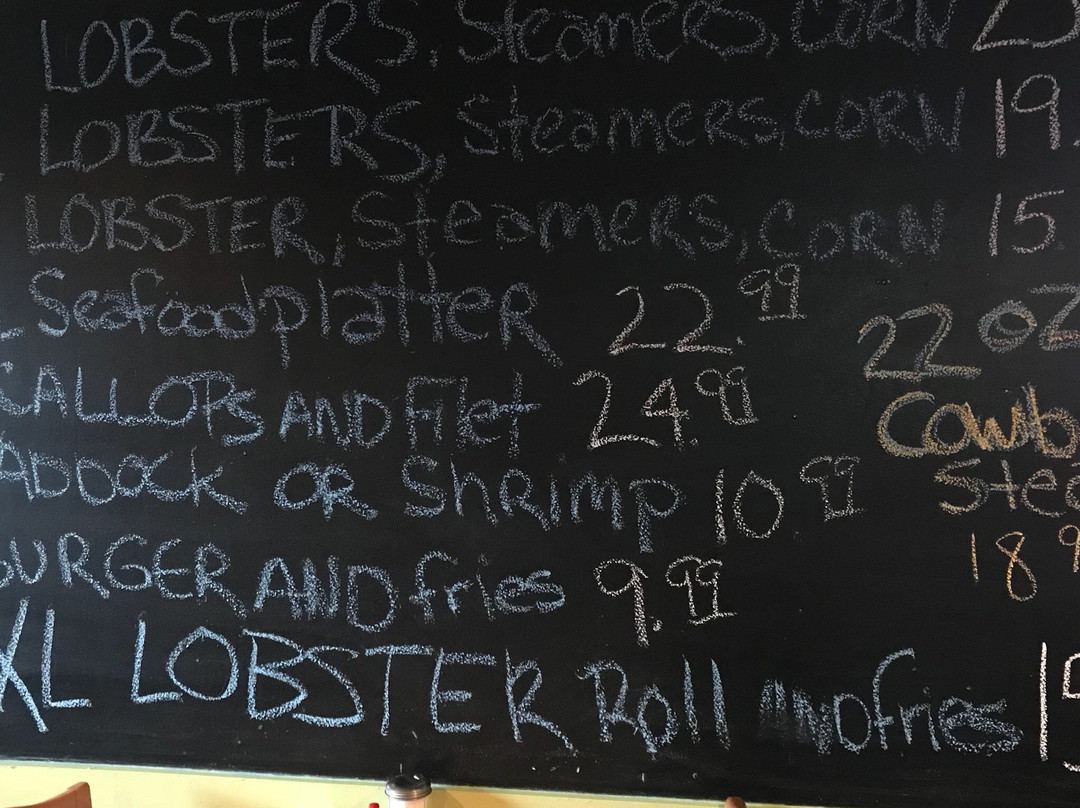 LOBSTERS, Steamers, CORN
LOBSTERS, Steamers, CORN 19.
LOBSTER, Steamers, CORN 15.
Seafood platter 22.99
CALLOPS AND Filet 24.99
ADDOCK OR Shrimp 10 99
BURGER AND fries 9.99
XL LOBSTER Roll AND fries
22 OZ
Cowb
Stea
18 9